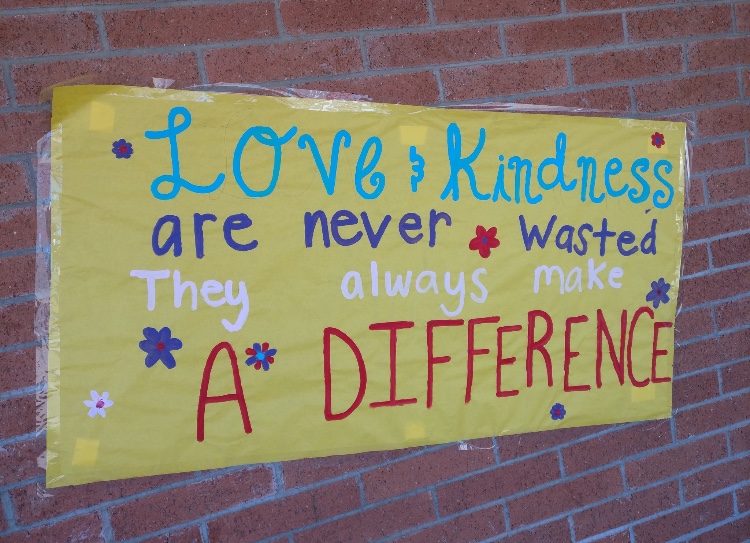 Love & Kindness
are never Wasted
They always make
A DIFFERENCE